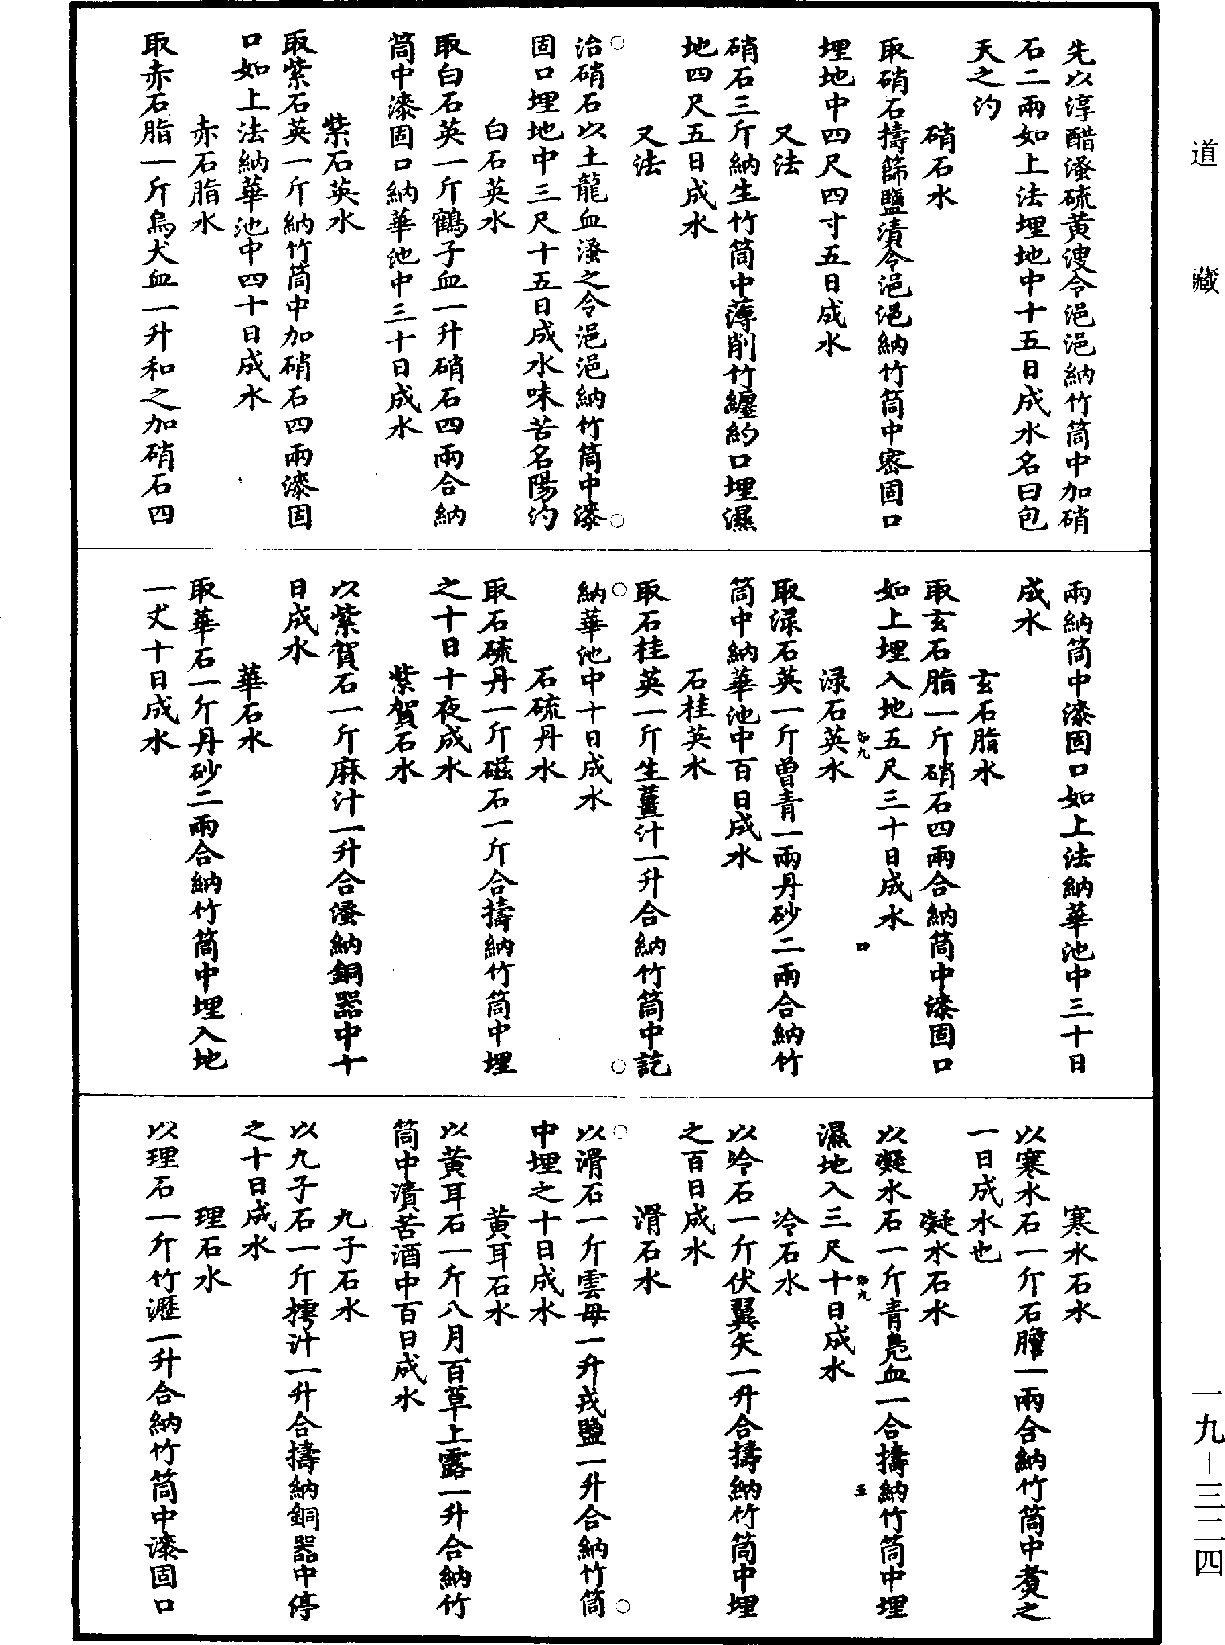 道藏
先以淳醋溲硫黄溲令浥浥納竹筒中加硝
石二兩如上法埋地中十五日成水名曰包
天之汋
硝石水
取硝石擣篩鹽漬令浥浥納竹筒中密固口
埋地中四尺四寸五日成水
又法
硝石三斤納生竹筒中薄削竹纏約口埋濕
地四尺五日成水
又法
治硝石以土龍血溲之令浥浥納竹筒中漆
固口埋地中三尺十五日成水味苦名陽汋
白石英水
取白石英一斤鶴子血一升硝石四兩合納
筒中漆固口納華池中三十日成水
紫石英水
取紫石英一斤納竹筒中加硝石四兩漆固
口如上法納華池中四十日成水
赤石脂水
取赤石脂一斤烏犬血一升和之加硝石四
兩納筒中漆固口如上法納華池中三十日
成水
玄石脂水
取玄石脂一斤硝石四兩合納筒中漆固口
如上埋入地五尺三十日成水
渌石英水
取渌石英一斤曾青一兩丹砂二兩合納竹
筒中納華池中百日成水
石桂英水
取石桂英一斤生薑汁一升合納竹筒中訖
納華池中十日成水
石硫丹水
取石硫丹一斤磁石一斤合擣納竹筒中埋
之十日十夜成水
紫賀石水
以紫賀石一斤麻汁一升合溲納銅器中十
日成水
華石水
取華石一斤丹砂二兩合納竹筒中埋入地
一丈十日成水
寒水石水
以寒水石一斤石膽一兩合納竹筒中煑之
一日成水也
凝水石水
以凝水石一斤青鳧血一合擣納竹筒中埋
濕地入三尺十日成水
冷石水
以冷石一斤伏翼矢一升合擣納竹筒中埋
之百日成水
滑石水
以滑石一斤雲母一升戎鹽一升合納竹筒
中埋之十日成水
黄耳石水
以黄耳石一斤八月百草上露一升合納竹
筒中漬苦酒中百日成水
九子石水
以九子石一斤樗汁一升合擣納銅器中停
之十日成水
理石水
以理石一斤竹瀝一升合納竹筒中漆固口
一九-三二四